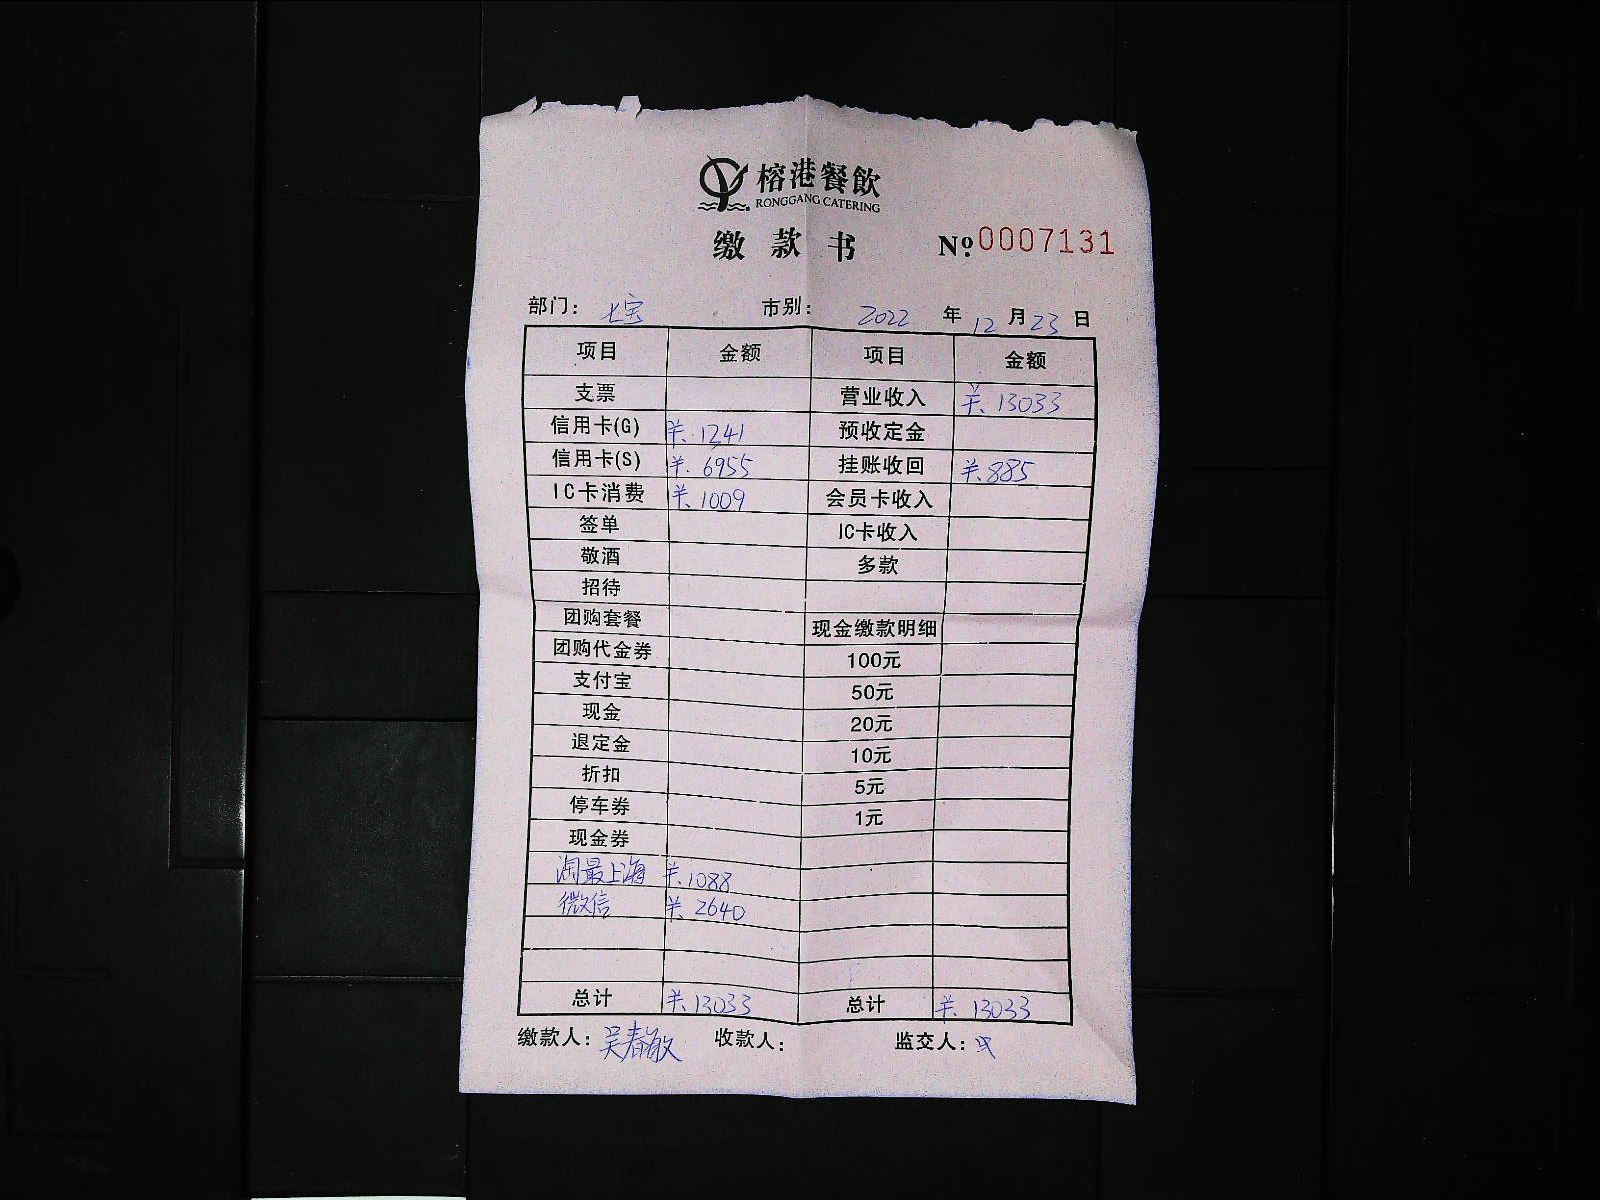 榕港餐飲
RONGGANG CATERING
缴款书 №:0007131
部门: 七宝 市别: 2022 年 12 月 23 日
项目 金额 项目 金额
支票 营业收入 ¥.13033
信用卡(G) ¥.1241 预收定金
信用卡(S) ¥.6955 挂账收回 ¥.885
IC卡消费 ¥.1009 会员卡收入
签单 IC卡收入
敬酒 多款
招待
团购套餐 现金缴款明细
团购代金券 100元
支付宝 50元
现金 20元
退定金 10元
折扣 5元
停车券 1元
现金券
淘最上海 ¥.1088
微信 ¥.2640
总计 ¥.13033 总计 ¥.13033
缴款人: 吴春敏 收款人: 监交人: